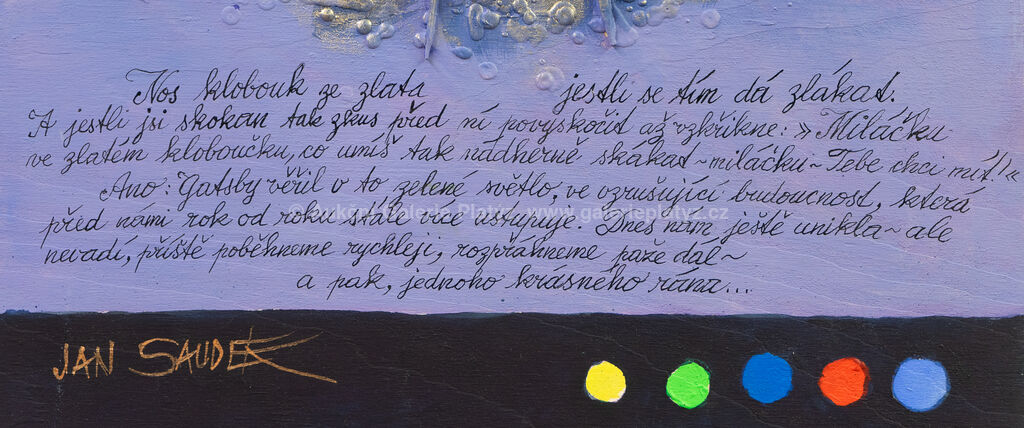 Nos klobouk ze zlata jestli se tím dá zlákat.
A jestli jsi skokan tak zkus před ní povyskočit až vzkřikne: »Miláčku
ve zlatém kloboučku, co umíš tak nádherně skákat~miláčku~Tebe chci mít!«
Ano: Gatsby věřil v to zelené světlo, ve vzrušující budoucnost, která
před námi rok od roku stále více ustupuje. Dnes nám ještě unikla~ale
nevadí, příště poběhneme rychleji, rozpřáhneme paže dál~
a pak, jednoho krásného rána...
www.galerieplatyz.cz
JAN SAUDEK